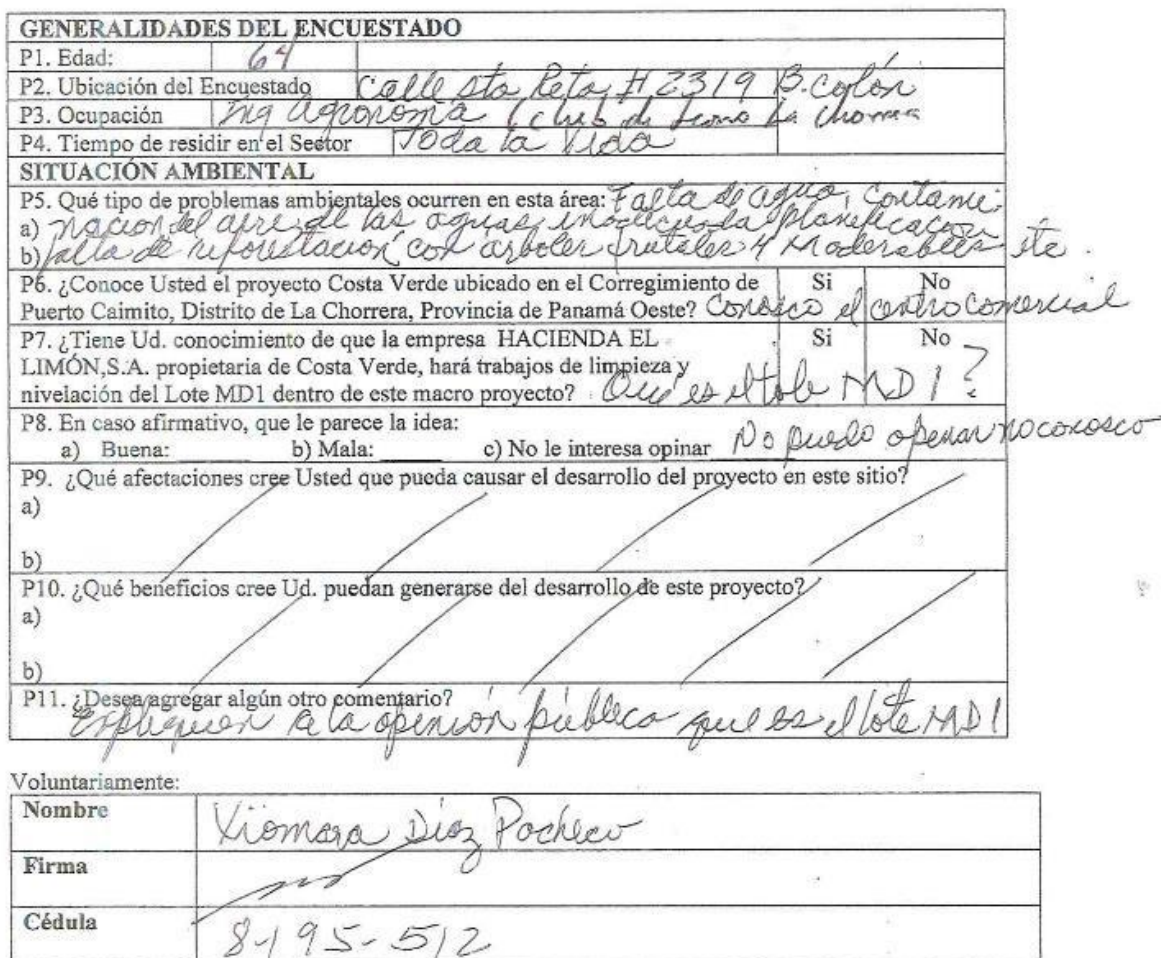 GENERALIDADES DEL ENCUESTADO
P1. Edad: 64
P2. Ubicación del Encuestado Calle Sta Rita # 2319 B. Colón
P3. Ocupación Ing Agronoma (club de Leones La Chorrera
P4. Tiempo de residir en el Sector Toda la Vida
SITUACIÓN AMBIENTAL
P5. Qué tipo de problemas ambientales ocurren en esta área: Falta de agua, contami-
a) nacion del aire, de las aguas, inadecuada planificación
b) falta de reforestación con arboles frutales y Maderables etc.
P6. ¿Conoce Usted el proyecto Costa Verde ubicado en el Corregimiento de Si No
Puerto Caimito, Distrito de La Chorrera, Provincia de Panamá Oeste? Conosco el centro comercial
P7. ¿Tiene Ud. conocimiento de que la empresa HACIENDA EL Si No
LIMÓN,S.A. propietaria de Costa Verde, hará trabajos de limpieza y
nivelación del Lote MD1 dentro de este macro proyecto? Qué es el lote MD1?
P8. En caso afirmativo, que le parece la idea:
a) Buena: ______ b) Mala: ______ c) No le interesa opinar No puedo openar no conosco
P9. ¿Qué afectaciones cree Usted que pueda causar el desarrollo del proyecto en este sitio?
a)
b)
P10. ¿Qué beneficios cree Ud. puedan generarse del desarrollo de este proyecto?
a)
b)
P11. ¿Desea agregar algún otro comentario?
Expliquen a la opinión pública que es el lote MD1
Voluntariamente:
Nombre Xiomara Díaz Pacheco
Firma
Cédula 8-195-512